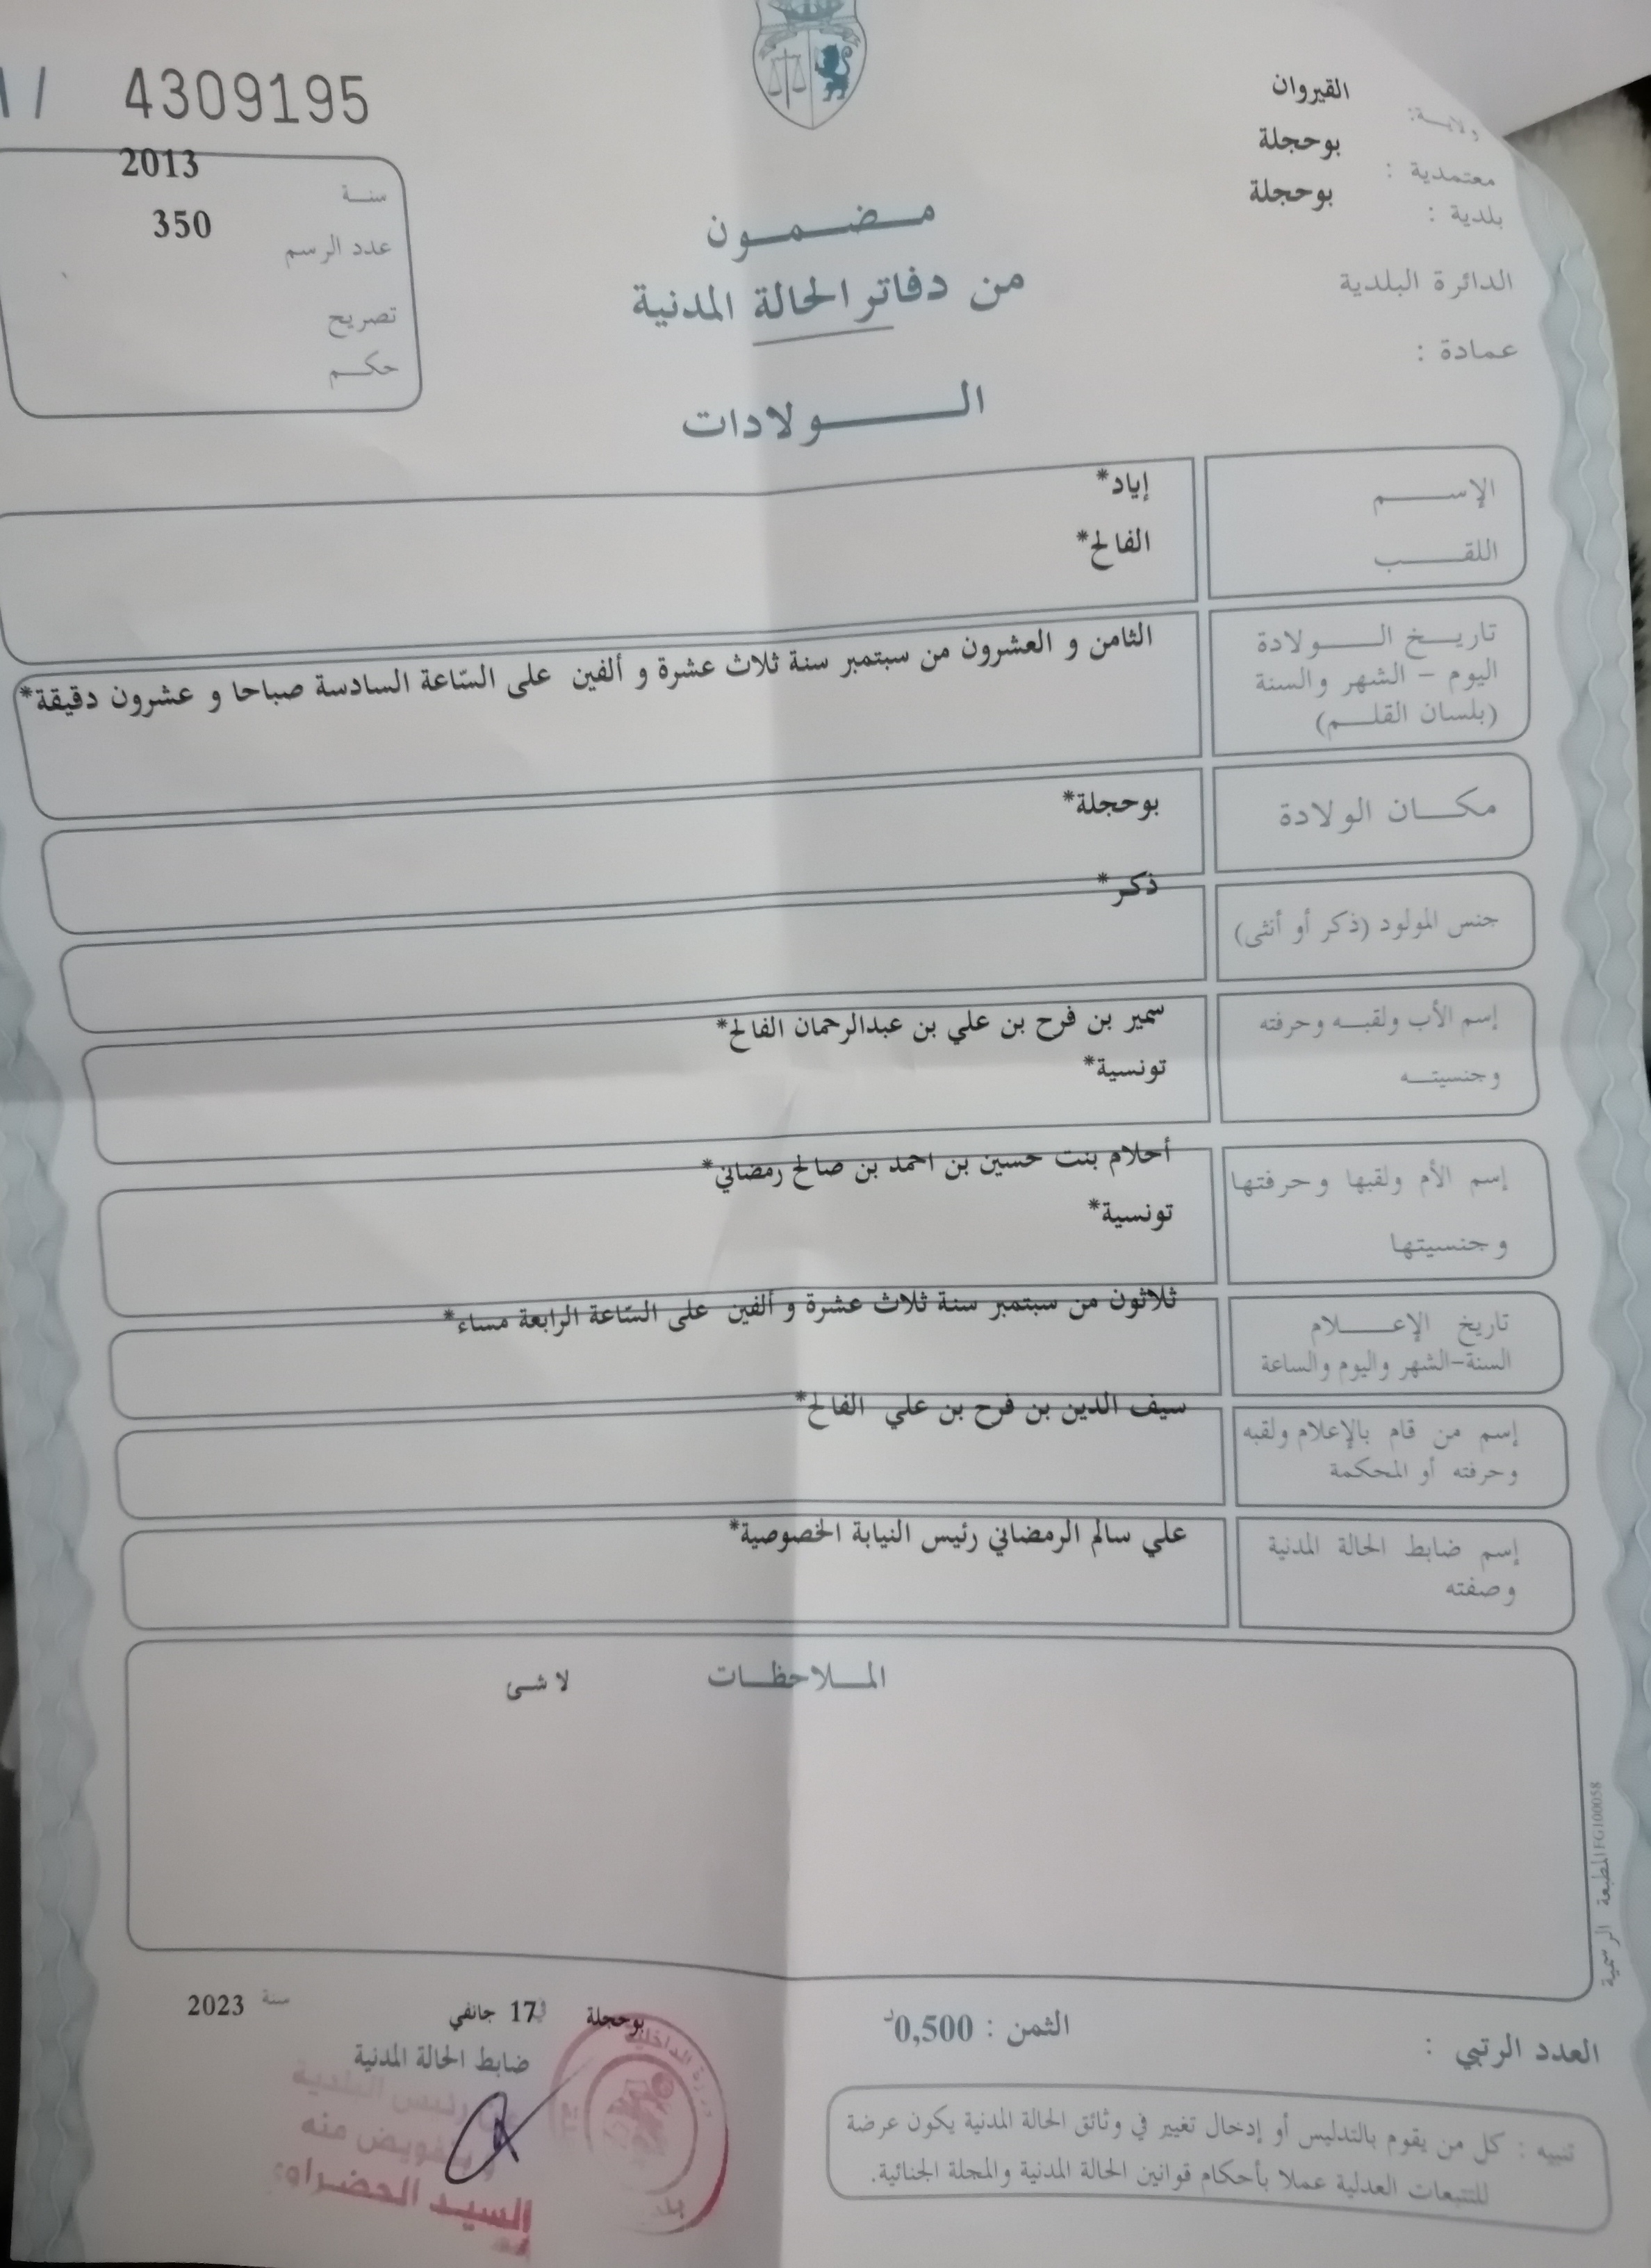 4309195
ولاية: القيروان
معتمدية : بوحجلة
بلدية : بوحجلة
الدائرة البلدية
عمادة :
سنة 2013
عدد الرسم 350
تصريح
حكم
مضمون
من دفاتر الحالة المدنية
الولادات
الإسم إياد*
اللقب الفالح*
تاريخ الولادة
اليوم - الشهر والسنة
(بلسان القلم)
الثامن و العشرون من سبتمبر سنة ثلاث عشرة و ألفين على السّاعة السادسة صباحا و عشرون دقيقة*
مكان الولادة بوحجلة*
جنس المولود (ذكر أو أنثى) ذكر*
إسم الأب ولقبه وحرفته سمير بن فرح بن علي بن عبدالرحمان الفالح*
وجنسيته تونسية*
إسم الأم ولقبها وحرفتها أحلام بنت حسين بن احمد بن صالح رمضاني*
وجنسيتها تونسية*
تاريخ الإعلام
السنة-الشهر واليوم والساعة
ثلاثون من سبتمبر سنة ثلاث عشرة و ألفين على السّاعة الرابعة مساء*
إسم من قام بالإعلام ولقبه
وحرفته أو المحكمة
سيف الدين بن فرح بن علي الفالح*
إسم ضابط الحالة المدنية
وصفته
علي سالم الرمضاني رئيس النيابة الخصوصية*
الملاحظات لا شئ
المطبعة الرسمية
العدد الرتبي :
الثمن : 0,500د
بوحجلة 17 جانفي سنة 2023
ضابط الحالة المدنية
رئيس البلدية
بتفويض منه
السيد
تنبيه : كل من يقوم بالتدليس أو إدخال تغيير في وثائق الحالة المدنية يكون عرضة
للتتبعات العدلية عملا بأحكام قوانين الحالة المدنية والمجلة الجنائية.